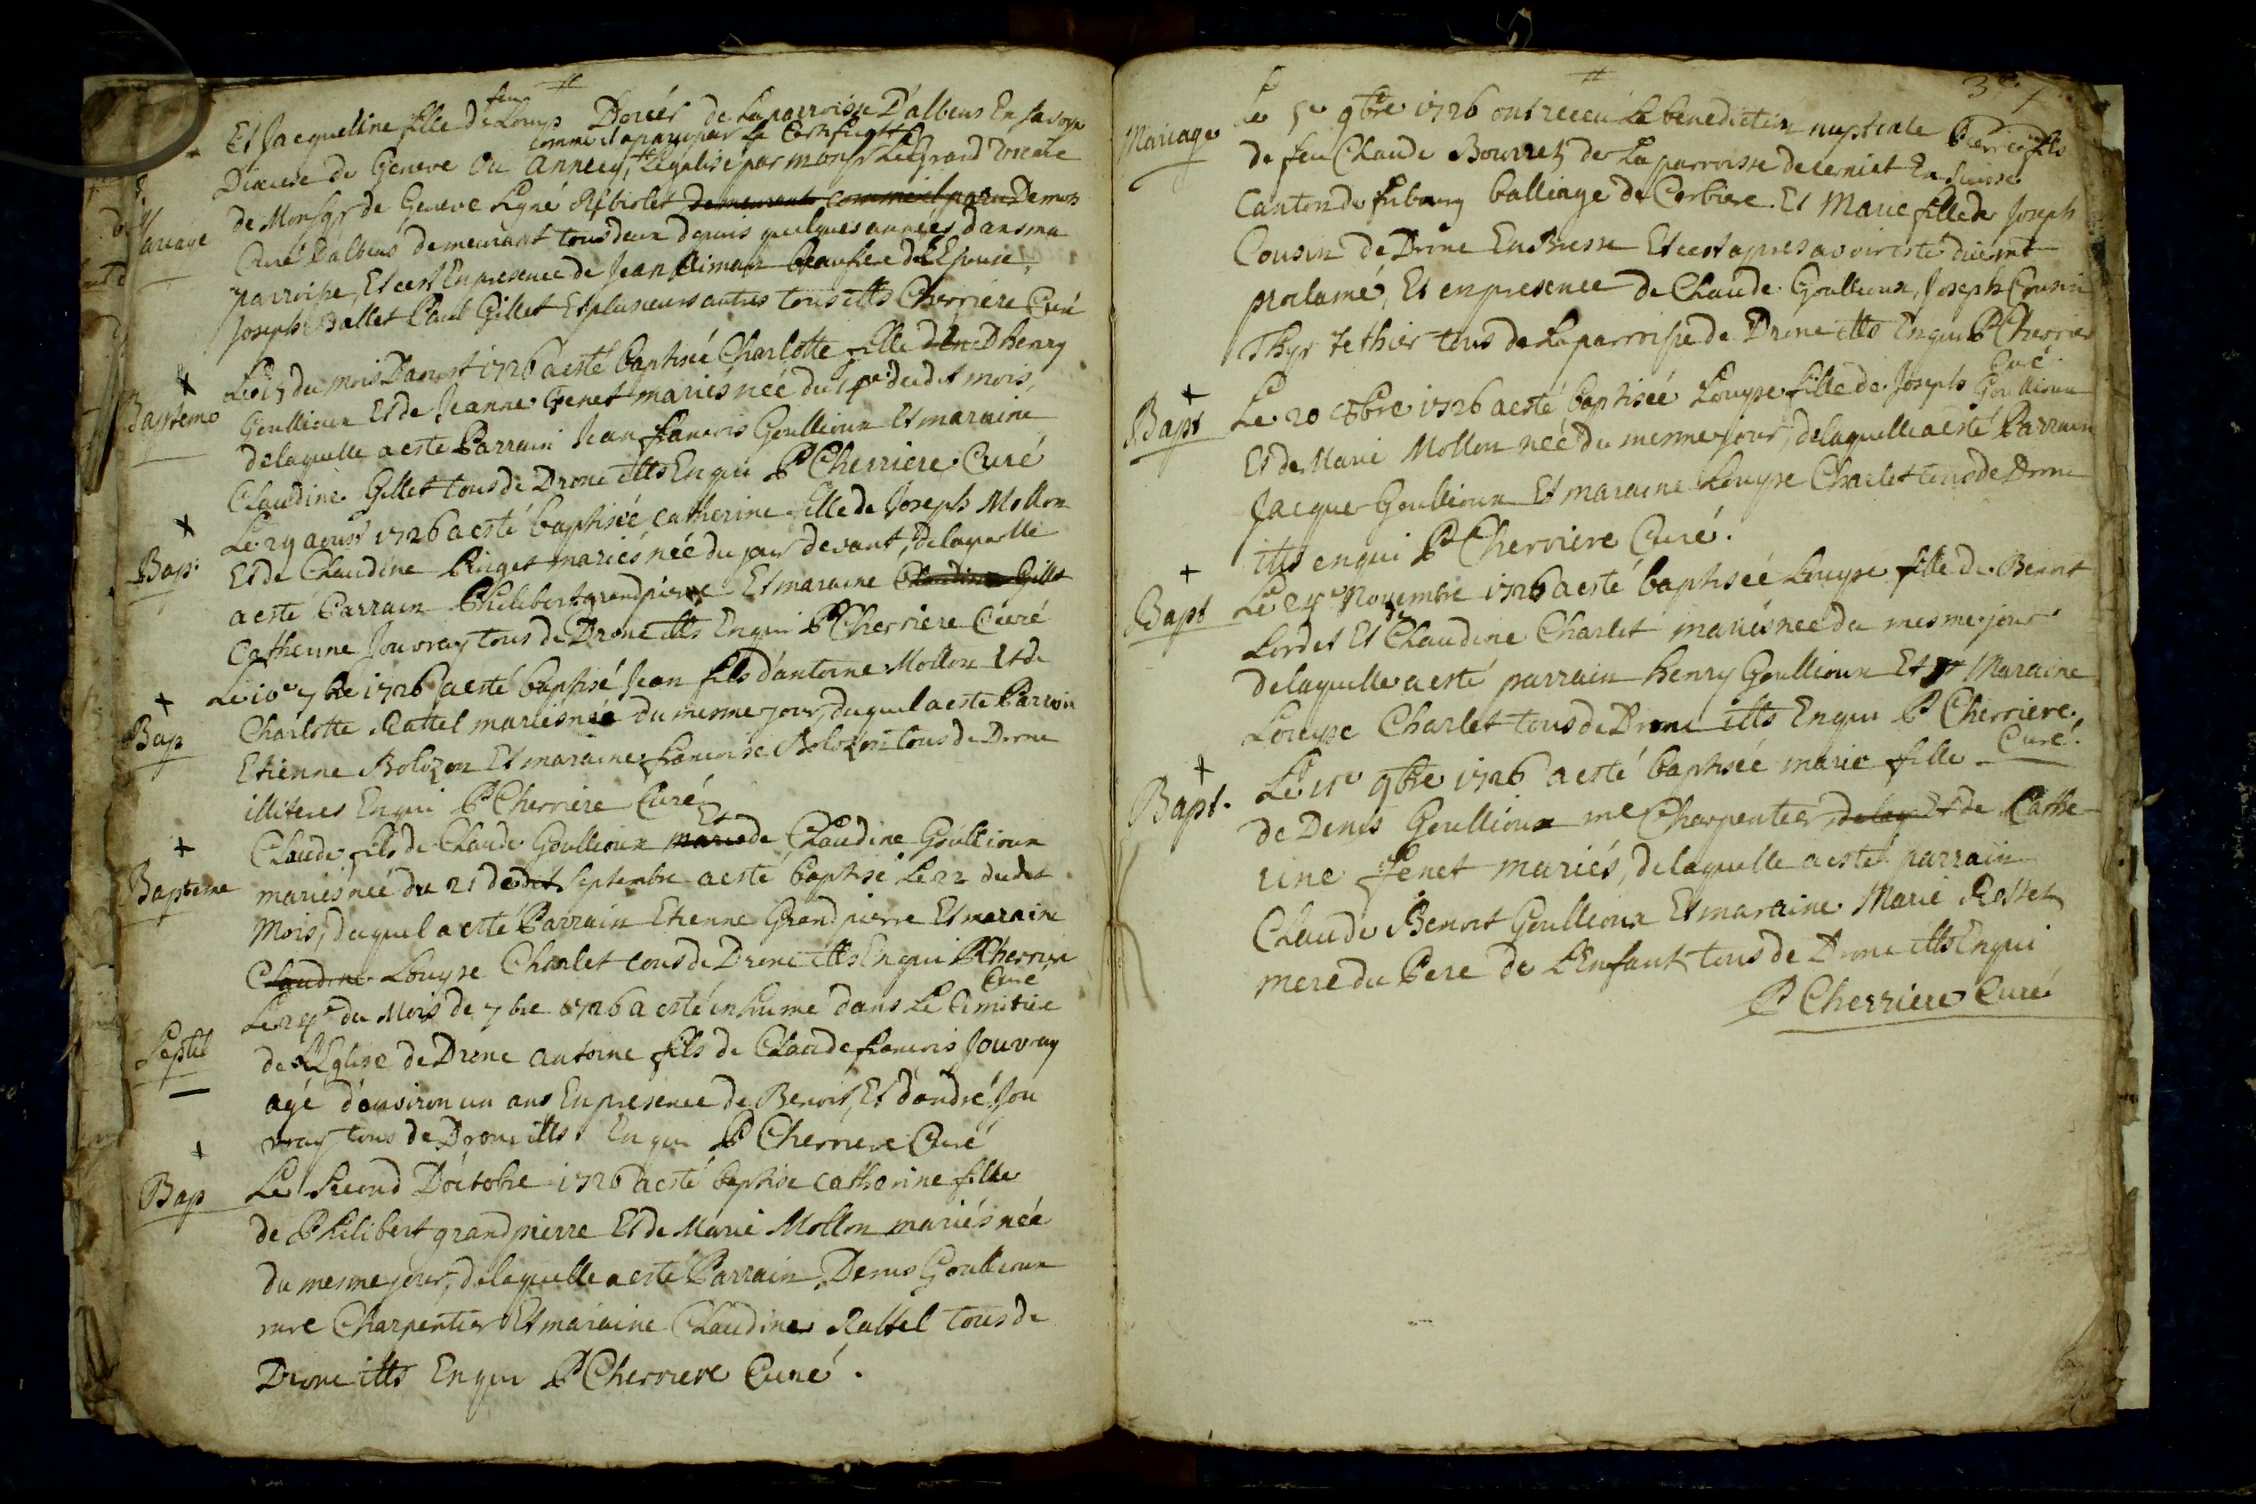 Et Jacqueline fille de feu Louys Dorcier de la parroisse D'albens En Savoye
comme il a paru par Le Certificat
Diocese de Geneve ou annecy, Legalisé par monsr Le Grand Vicaire
de Monsgr de Geneve signé Ribiolet demeurants comme il paru De mon
Mariage
Curé Dalbens demeurant tous deux depuis quelques années dans ma
parroisse, Et cest En presence de Jean aimain beaufrere de L'Epouse,
Joseph Ballet Paul Gillet Et plusieurs autres tous illts Cherriere Curé
Bapteme
Le 15 du mois Daoust 1726 a esté baptisée Charlotte fille d'henry
Goullioux Et de Jeanne Genet mariés née du 14e dudit mois,
delaquelle a este Parrain Jean francois Goullioux Et maraine
Claudine Gillet tous de Drone illts Enqui P Cherriere Curé
Bap.
Le 29 aoust 1726 a esté baptisée catherine fille de Joseph Mollon
Et de Claudine Pinget mariés née du jour devant, delaquelle
a esté Parrain Philibert grandpierre Et maraine Claudine Gillet
Catherine Jouvray tous de Drone illts Enqui P Cherriere Curé
Bap
Le 10e 7bre 1726 a esté baptisé Jean fils dantoine Mollon Et de
Charlotte Rattel mariés née du mesme jour, duquel a este Parrain
Etienne Bolozon Et maraine francoise Bolozon tous de Drone
illiteres Enqui P Cherriere Curé
Bapteme
Claude fils de Claude Goullioux Et mariés de Claudine Goullioux
mariés née du 21 dedit Septembre a esté baptisé Le 22 dudit
Mois, duquel a esté Parrain Etienne Grandpierre Et maraine
Claudine Louyse Charlet tous de Drone illts Enqui P Cherriere
Curé
Septel
Le 24e du Mois de 7bre 1726 a esté inhumé dans Le Cimitiere
de L'Eglise de Drone antoine fils de Claude francois Jouvray
agé d'environ un ans En presence de Benoit, Et d'andré Jou
vray tous de Drone illts. Enqui P Cherriere Curé
Bap
Le Second D'octobre 1726 a esté baptise catherine fille
de Philibert grandpierre Et de Marie Mollon mariés née
du mesme jour, delaquelle a esté Parrain Denis Goullioux
me Charpentier Et maraine Claudine Rattel tous de
Drone illts Enqui P Cherriere Curé.
Mariage
Le 5e 9bre 1726 ont receu La benediction nuptiale Pierre fils
de feu Claude Bourret de La parroisse de Cerniet En Suisse
Canton de fribourg balliage de Corbiere. Et Marie fille de Joseph
Cousin de Drone En Bresse Et cest apres avoir esté duemt
proclamé, Et en presence de Claude Goullioux, Joseph Cousin
Thyr Tethier tous de La parroisse de Drone illts Enqui P Cherriere
Curé.
Bapt
Le 20 8bre 1726 a esté baptisée Louyse fille de Joseph Goullioux
Et de Marie Mollon née du mesme jour, delaquelle a esté Parrain
Jacque Goullioux Et maraine Louyse Charlet tous de Drone
illts enqui P Cherriere Curé.
Bapt
Le 24e Novembre 1726 a esté baptisée Louyse fille de Benoit
Lordet Et de Claudine Charlet mariés née du mesme jour
delaquelle a esté parrain henry Goullioux Et Maraine
Louyse Charlet tous de Drone illts Enqui P Cherriere.
Curé.
Bapt.
Le 15e 9bre 1726 a esté baptisée marie fille
de Denis Goullioux me Charpentier delaq Et de Cathe
rine Genet mariés, delaquelle a esté parrain
Claude Benoit Goullioux Et maraine Marie Rosset
mere du Pere de L'Enfant tous de Drone illts Enqui
P Cherriere Curé